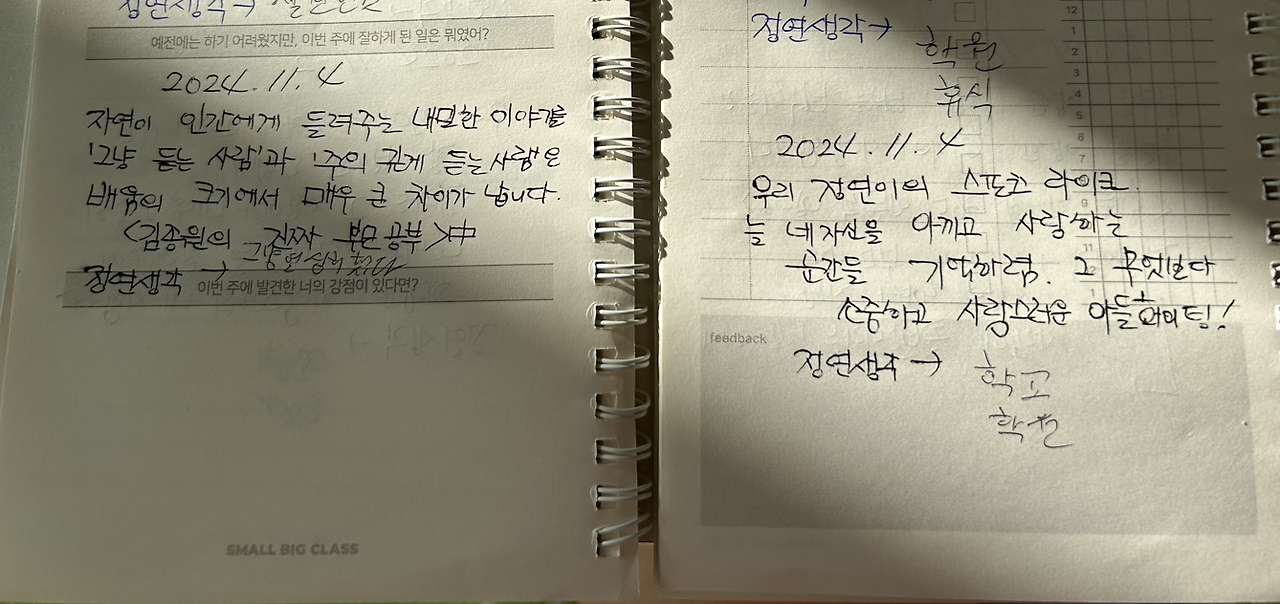 정연생각→
예전에는 하기 어려웠지만, 이번 주에 잘하게 된 일은 뭐였어?
2024.11.4
자연이 인간에게 들려주는 내밀한 이야기를
'그냥 듣는 사람'과 '주의 깊게 듣는 사람'은
배움의 크기에서 매우 큰 차이가 납니다.
<김종원의 진짜 부모 공부>中
정연생각 →
이번 주에 발견한 너의 강점이 있다면?
SMALL BIG CLASS
정연생각→ 학원
휴식
2024.11.4
우리 정연이의 스포츠 라이크.
늘 네 자신을 아끼고 사랑하는
순간들 기억하렴. 그 무엇보다
소중하고 사랑스러운 아들 화이팅!
feedback
정연생각→ 학교
학원
12
1
2
3
4
5
6
7
9
11